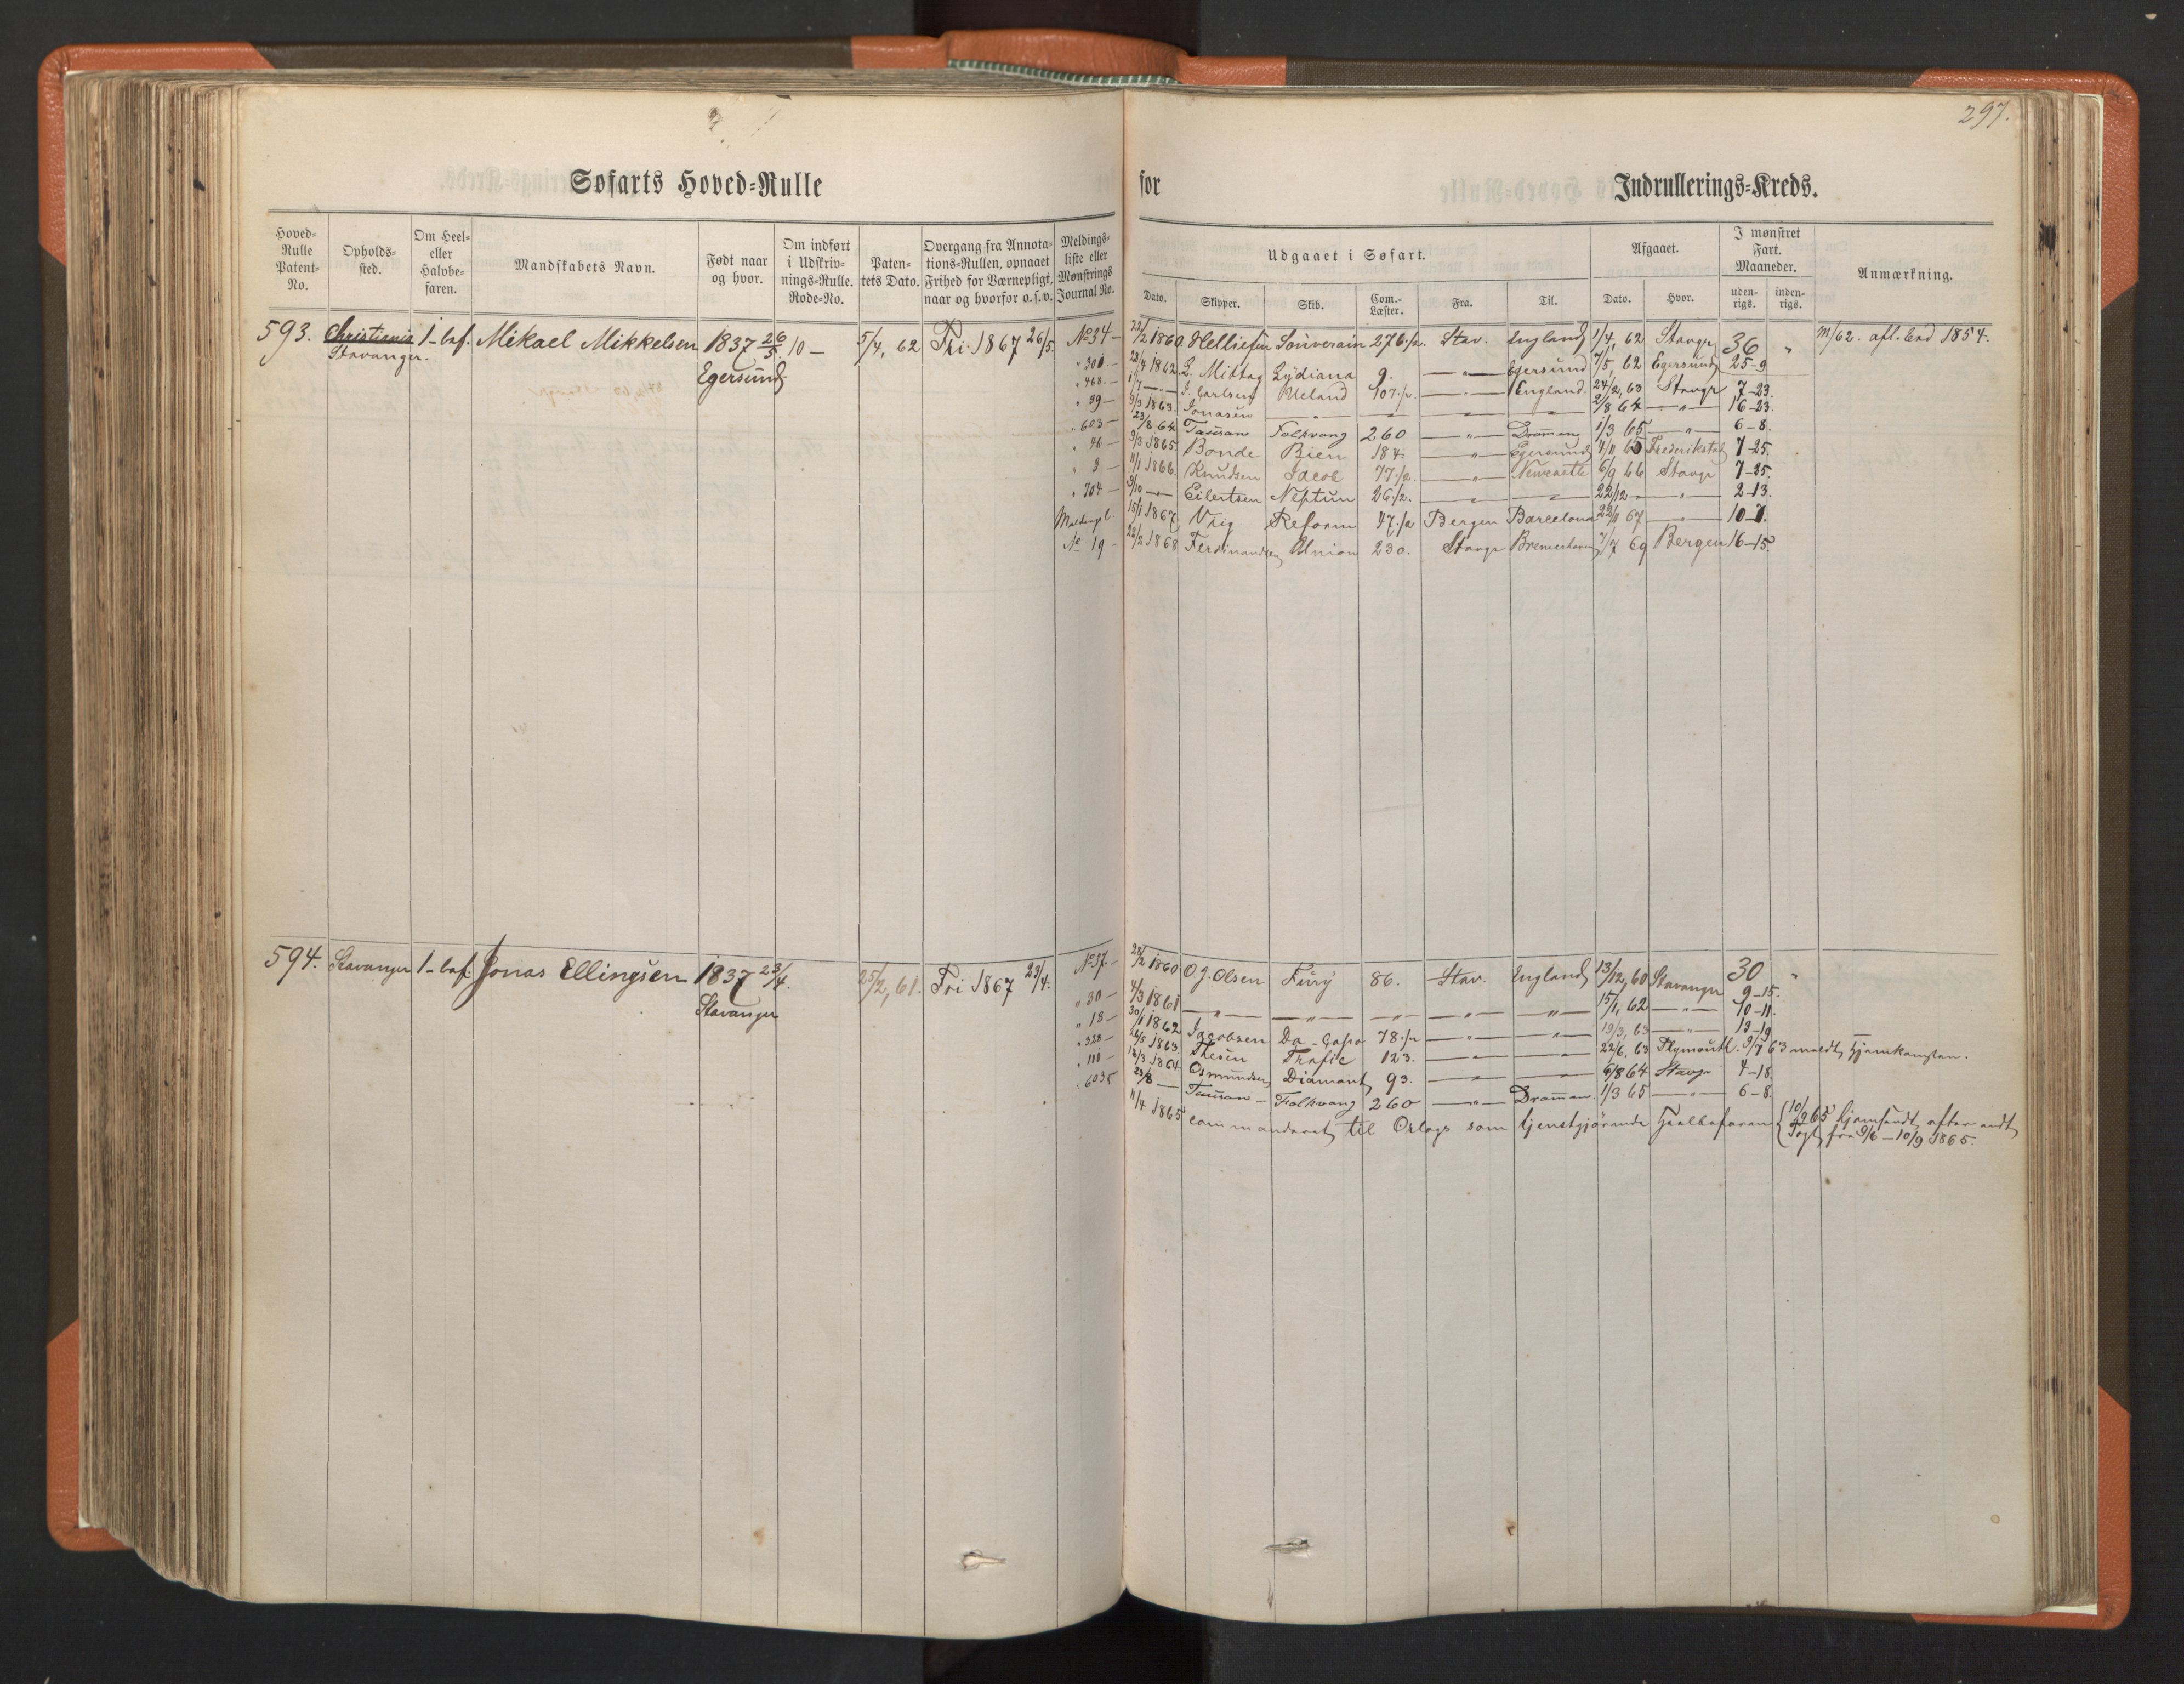 297.
Søfarts Hoved-Rulle for Indrullerings-Kreds.
Hoved-Rulle Patent-No.
Opholds-sted.
Om Heel- eller Halvbe-faren.
Mandskabets Navn.
Født naar og hvor.
Om indført i Udskriv-nings-Rulle. Rode-No.
Paten-tets Dato.
Overgang fra Annota-tions-Rullen, opnaaet Frihed for Værnepligt, naar og hvorfor o.s.v.
Meldings-liste eller Mønstrings Journal No.
Udgaaet i Søfart.
Dato.
Skipper.
Skib.
Com.-Læster.
Fra.
Til.
Afgaaet.
Dato.
Hvor.
I mønstret Fart. Maaneder.
uden-rigs.
inden-rigs.
Anmærkning.
593. Christiania 1-bef. Mikael Mikkelsen 1837 26/5 10 - 5/4, 62 Fri 1867 26/5. No 34 - 23/2 1860 Helliesen Souverain 276 1/2. Stav. England 1/4, 62 Stavgr 36 " M/62. afl. Eed 1854.
Stavanger. Egersund.
" 300 - 28/4 1862. L. Mittag Lydiana 9. —"— Egersund 7/5, 62 Egersund 25-9
" 468 - 1/7 —"— J. Carlsen Ueland 107 1/2. —"— England. 24/2, 63 Stavgr 7-23.
" 39 - 9/3 1863. Jonasen —"— —"— —"— —"— 2/8 64 —"— 16-23.
" 603 - 23/8 64. Tausan Folkvang 260 —"— Drammen 1/3 65 —"— 6-8.
" 46 - 9/3 1865. Bonde Bien 184. —"— Egersund 4/11 65 Frederikstad 7-25.
" 3 - 11/1 1866. Knudsen Jacob 77 1/2. —"— Newcastle 6/9 66 Stavgr 7-25.
" 704 - 9/10 —"— Eilertsen Neptun 26 1/2. —"— —"— 22/12 - —"— 2-13.
15/1 1867. Vrig Reform 47 1/2 Bergen Barcelona 22/11 67 —"— 10-7.
No 19 - 22/2 1868 Ferdinandsen Union 230. Stavgr Bremerhaven 7/7 69 Bergen 16-15.
594. Stavanger 1-bef. Jonas Ellingsen 1837 23/4. 25/2, 61. Fri 1867 23/4. No 37. - 23/2 1860 O. J. Olsen Fury 86. Stav. England 13/12, 60 Stavanger 30 "
Stavanger 9-15.
" 30 - 4/3 1861 —"— —"— —"— —"— —"— 15/1, 62 —"— 10-11.
" 18 - 30/1 1862 Jacobsen Da-Capo 78 1/2 —"— —"— 19/3, 63 —"— 13-19
" 323 - 26/5 1863. Thesen Trafic 123. —"— —"— 22/6, 63 Plymouth. 9/7 63 meldt Hjemkomsten.
" 110 - 18/3 1864 Osmundsen Diamant 93. —"— —"— 6/8 64 Stavgr 4-18.
" 603 - 23/8 —"— Tausan - Folkvang 260 —"— Drammen. 1/3 65 —"— 6-8.
11/4 1865 commanderet til Orlogs som tjenstgjörende Heelbefaren { 10/9 65 hjemsendt efter endt
Togt fra 9/6 - 10/9 1865.